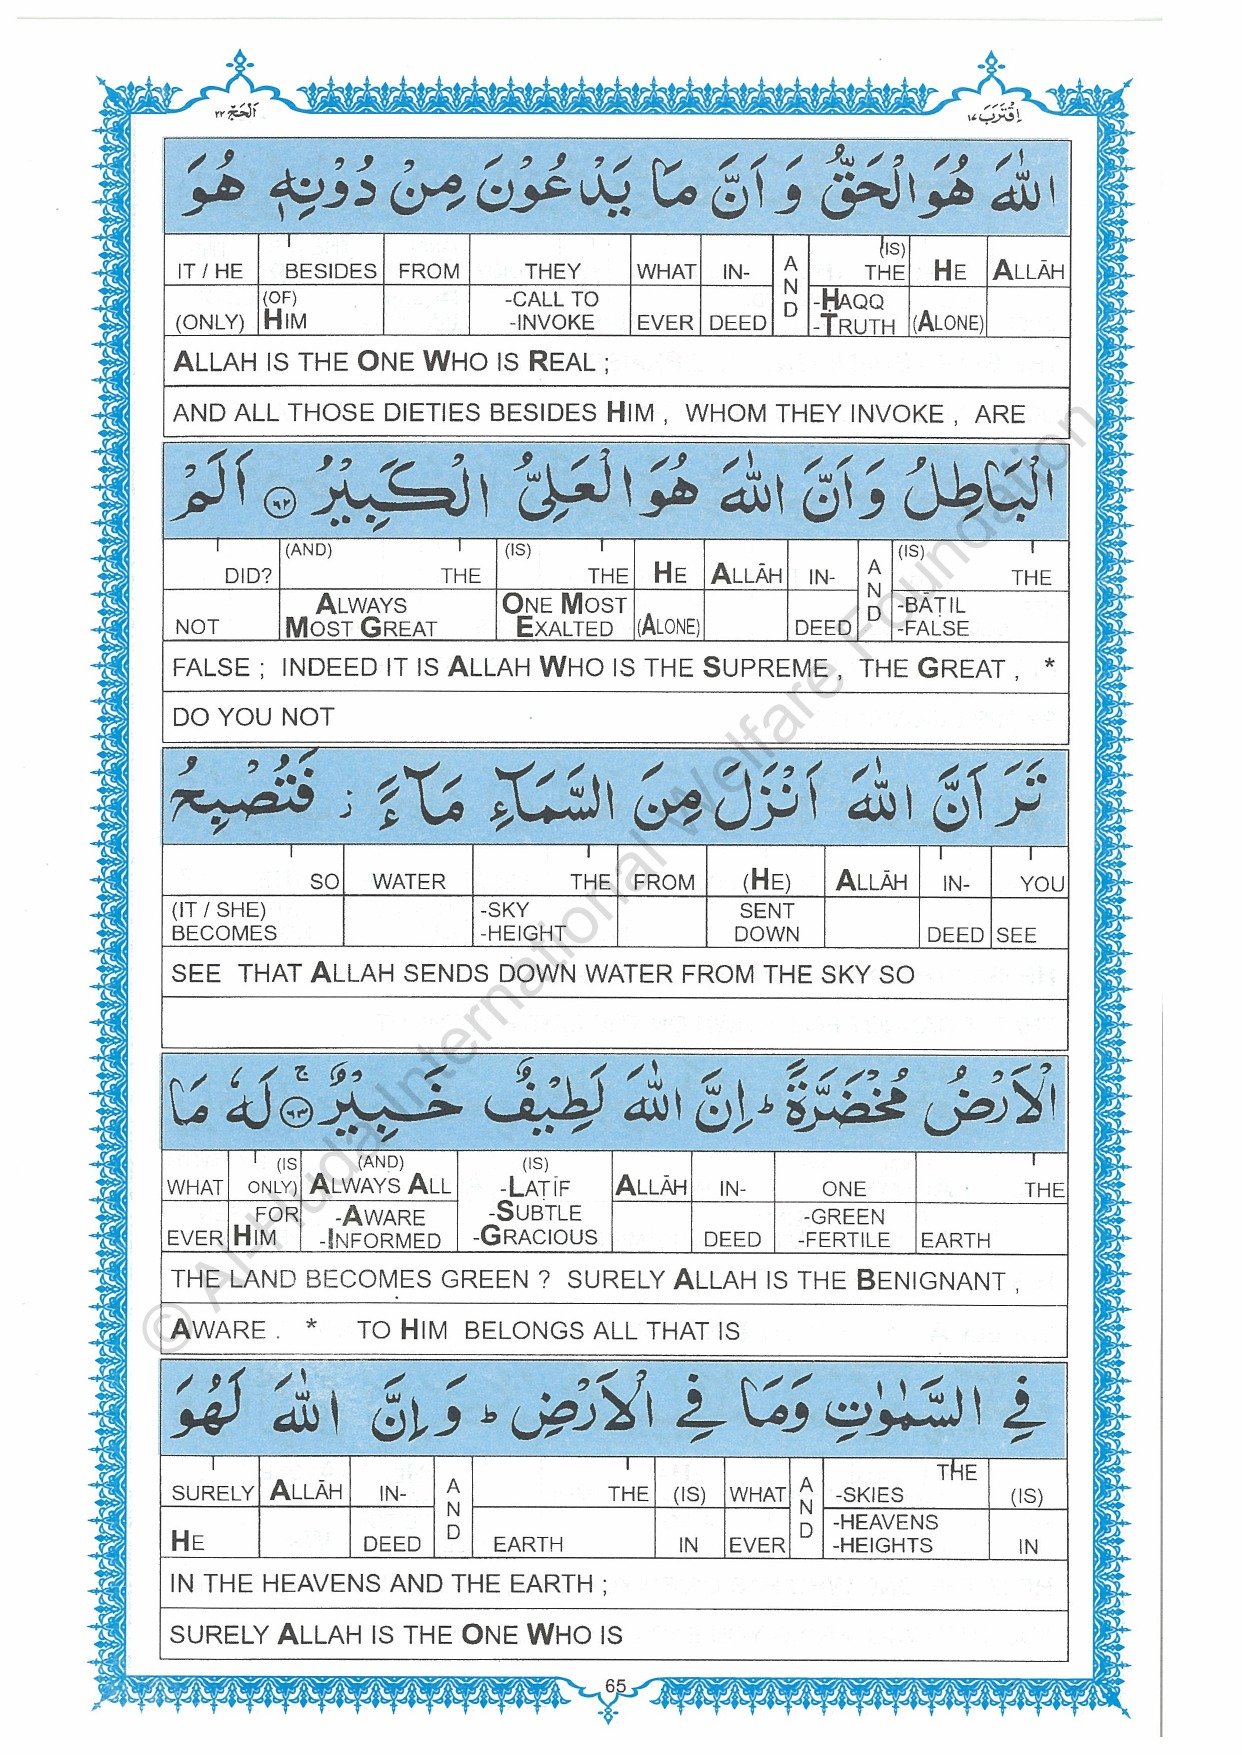 اَلْحَجّ ٢٢
اِقْتَرَبَ ١٧
اللّٰهَ هُوَ الْحَقُّ وَ اَنَّ مَا يَدْعُوْنَ مِنْ دُوْنِهٖ هُوَ
IT / HE BESIDES FROM THEY WHAT IN- AND (IS) THE HE ALLĀH
(ONLY) (OF) HIM -CALL TO -INVOKE EVER DEED -HAQQ -TRUTH (ALONE)
ALLAH IS THE ONE WHO IS REAL ;
AND ALL THOSE DIETIES BESIDES HIM , WHOM THEY INVOKE , ARE
الْبَاطِلُ وَ اَنَّ اللّٰهَ هُوَ الْعَلِيُّ الْكَبِيْرُ ٦٢ اَلَمْ
DID? (AND) THE (IS) THE HE ALLĀH IN- AND (IS) THE
NOT ALWAYS MOST GREAT ONE MOST EXALTED (ALONE) DEED -BĀṬIL -FALSE
FALSE ; INDEED IT IS ALLAH WHO IS THE SUPREME , THE GREAT , *
DO YOU NOT
تَرَ اَنَّ اللّٰهَ اَنْزَلَ مِنَ السَّمَآءِ مَآءً ز فَتُصْبِحُ
SO WATER THE FROM (HE) ALLĀH IN- YOU
(IT / SHE) BECOMES -SKY -HEIGHT SENT DOWN DEED SEE
SEE THAT ALLAH SENDS DOWN WATER FROM THE SKY SO
الْاَرْضُ مُخْضَرَّةً ط اِنَّ اللّٰهَ لَطِيْفٌ خَبِيْرٌ ج ٦٣ لَهٗ مَا
WHAT (IS ONLY) (AND) ALWAYS ALL (IS) -LAṬĪF ALLĀH IN- ONE THE
EVER FOR HIM -AWARE -INFORMED -SUBTLE -GRACIOUS DEED -GREEN -FERTILE EARTH
THE LAND BECOMES GREEN ? SURELY ALLAH IS THE BENIGNANT ,
AWARE . * TO HIM BELONGS ALL THAT IS
فِي السَّمٰوٰتِ وَمَا فِي الْاَرْضِ ط وَ اِنَّ اللّٰهَ لَهُوَ
SURELY ALLĀH IN- AND THE (IS) WHAT AND THE -SKIES (IS)
HE DEED EARTH IN EVER -HEAVENS -HEIGHTS IN
IN THE HEAVENS AND THE EARTH ;
SURELY ALLAH IS THE ONE WHO IS
65
© Al-Huda International Welfare Foundation